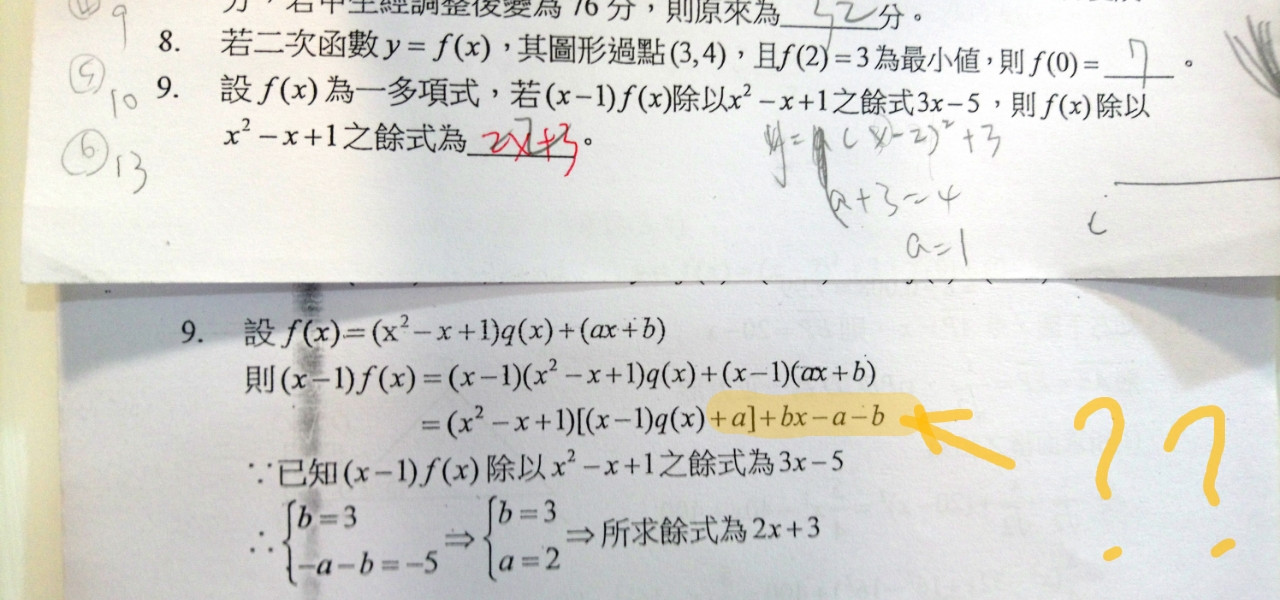 分，若中生經調整後變為 76 分，則原來為 52 分。
④ 9
8. 若二次函數 y = f(x)，其圖形過點 (3,4)，且 f(2) = 3 為最小值，則 f(0) = 7 。
⑤ 10
9. 設 f(x) 為一多項式，若 (x−1)f(x) 除以 x² − x + 1 之餘式 3x − 5，則 f(x) 除以
x² − x + 1 之餘式為 2x+3 。
⑥ 13
y = a(x−2)² + 3
a + 3 = 4
a = 1
9. 設 f(x) = (x² − x + 1)q(x) + (ax + b)
則 (x−1)f(x) = (x−1)(x² − x + 1)q(x) + (x−1)(ax + b)
= (x² − x + 1)[(x−1)q(x) + a] + bx − a − b ← ??
∵ 已知 (x−1)f(x) 除以 x² − x + 1 之餘式為 3x − 5
∴ { b = 3 −a − b = −5 ⇒ { b = 3 a = 2 ⇒ 所求餘式為 2x + 3